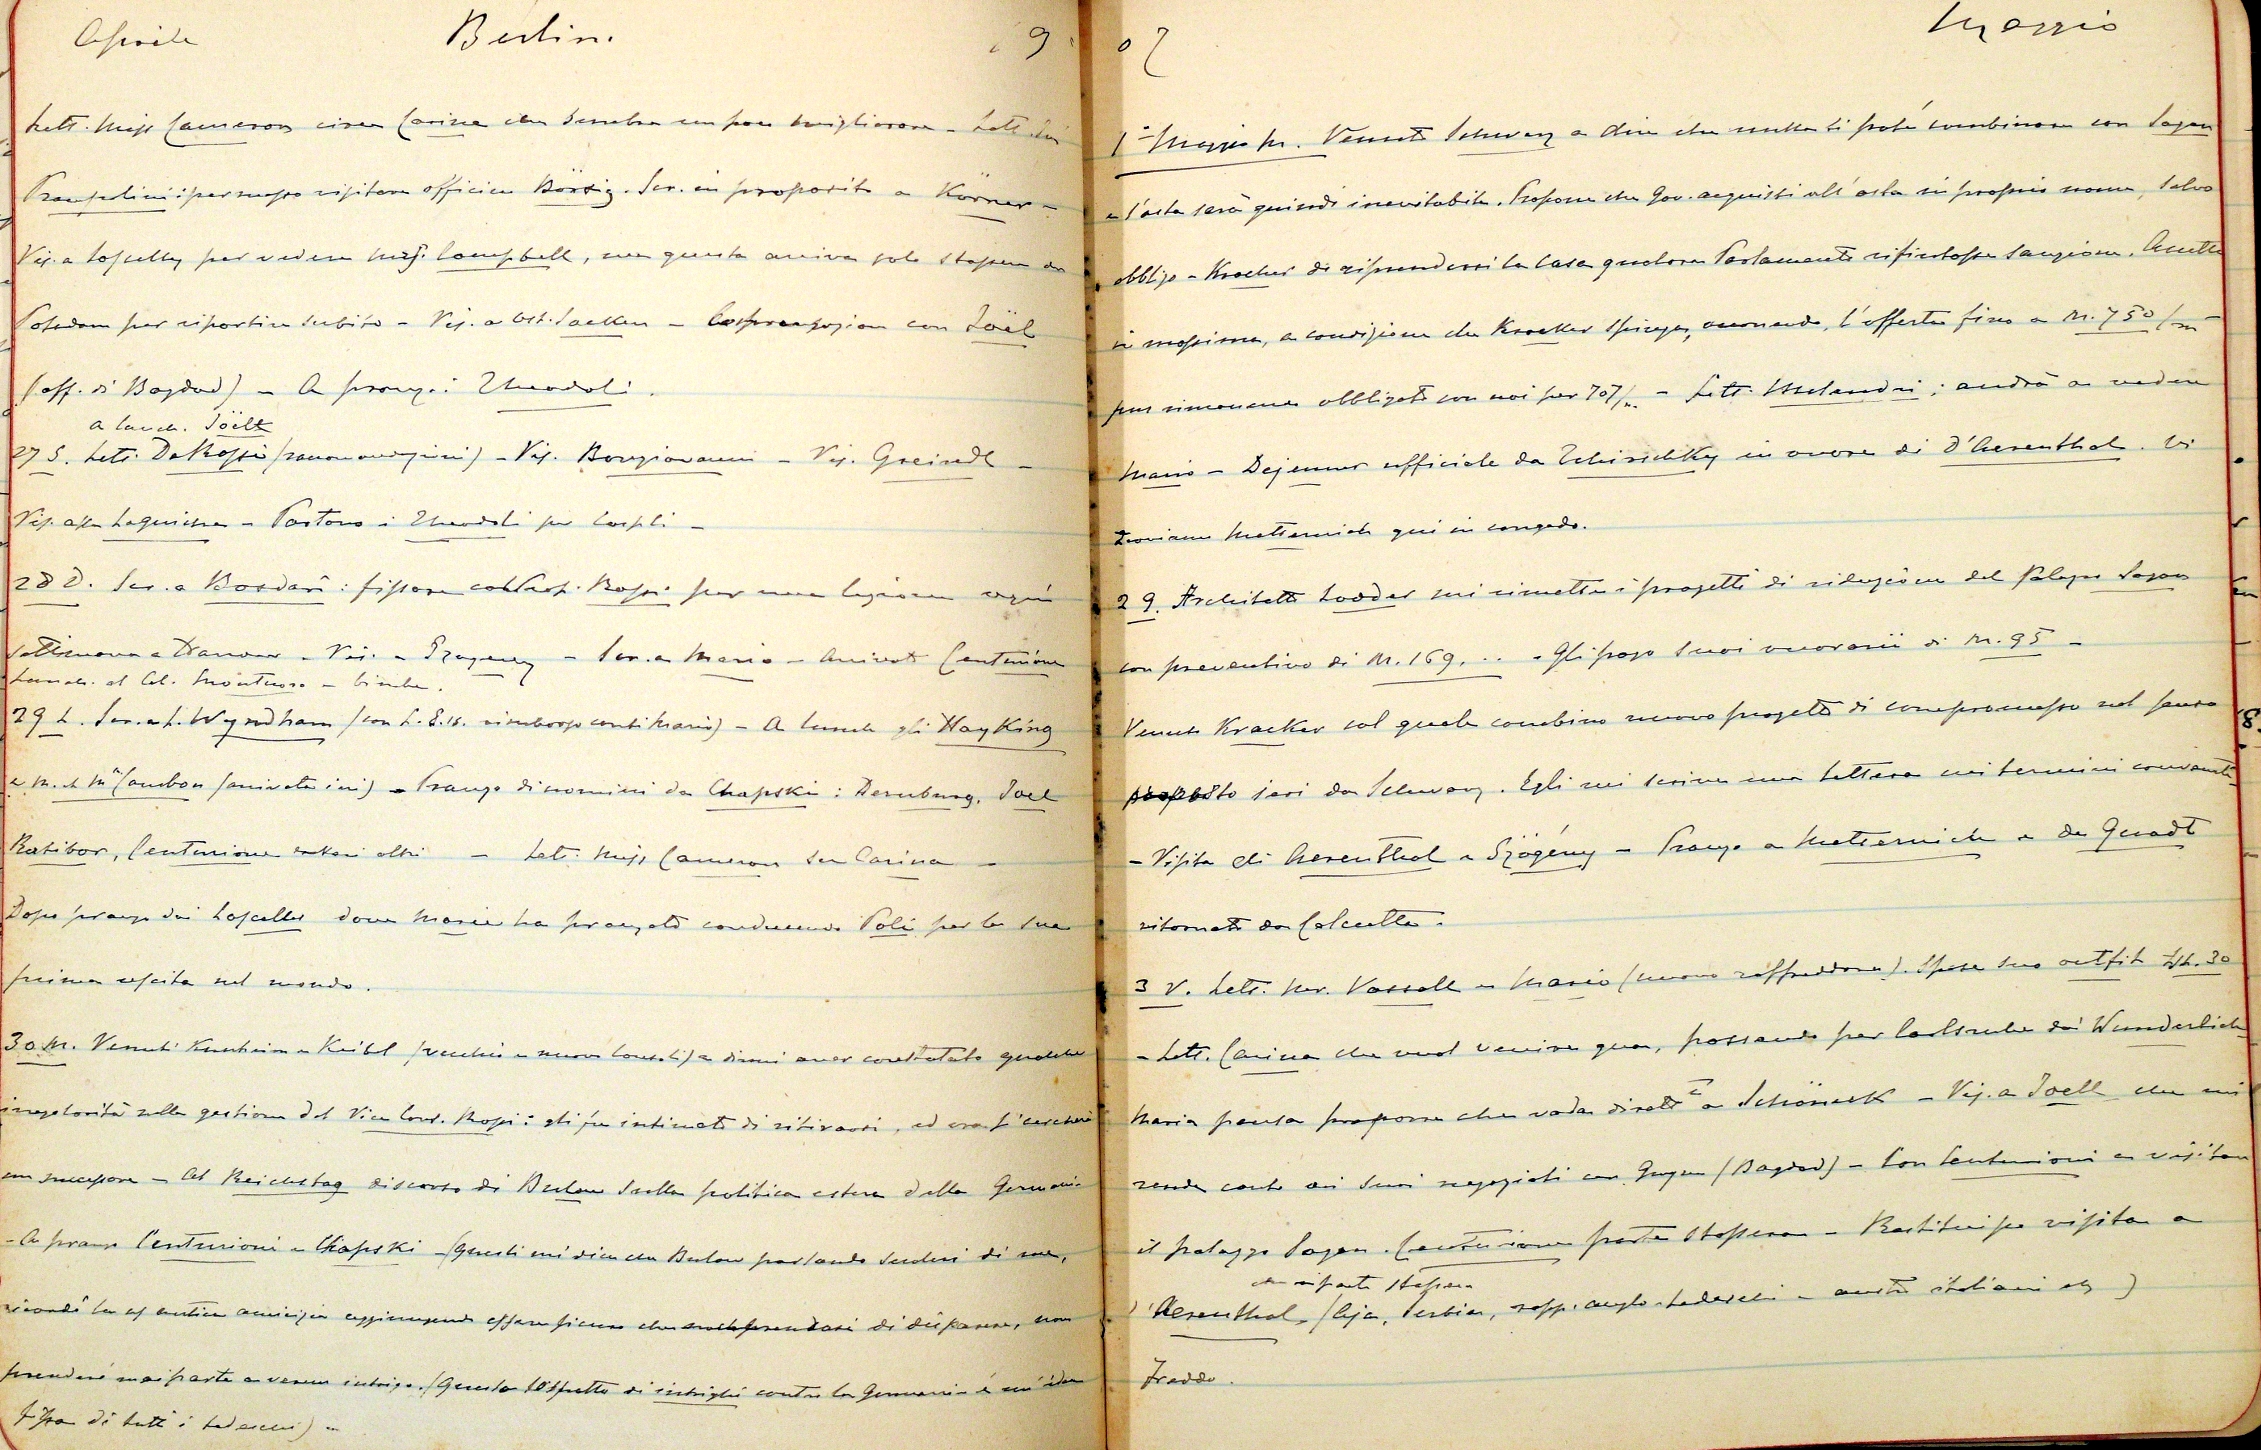 Aprile Berlin. 19
Lett. Miss Cameron circa Carina che sembra un poco migliorare - Lett.
permesso visitare officina Börsig. Scr. in proposito a Körner -
Vis. a Lascelles per vedere Mrs. Campbell, ma questa arriva solo stasera da
Potsdam per ripartire subito - Vis. a Ost. Sacken - Conversazione con Joël
(aff. di Bagdad) - A pranzo i Theodoli.
a lunch. Joëlt
27 S. Lett. De Rossi - Vis. Bongiovanni - Vis. Greindl -
Vis. alla Laguiche - Partono i Theodoli per
28 D. Scr. a Bosdari: fissare col Prof. Rossi per una lezione ogni
settimana a Hanover - Vis. a Szogeny - Scr. a Mario - Arrivato Centurione
Lunch. al Col. - bimbe.
29 L. Scr. a L. Wyndham (con L.E.18. rimborso conti Mario) - A lunch gli Hay King
e M. et Mme Cambon (arrivata ieri) - Pranzo di uomini da Chapski: Dernburg, Joel
Ratibor, Centurione ed altri - Lett. Miss Cameron su Carina -
Dopo pranzo dai Lascelles dove Maria ha pranzato conducendo Poli per la sua
prima uscita nel mondo.
30 M. Venuti Kunheim e Keibel (vecchio e nuovo Consoli) a dirmi aver constatato qualche
irregolarità nella gestione del Vice Cons. Rossi: gli fu intimato di ritirarsi, ed ora si cercherà
un successore - Al Reichstag discorso di Bulow sulla politica estera della Germania
- A pranzo Centurioni e Chapski - (questi mi dice che Bulow parlando seco lui di me,
ricordò la ns antica amicizia aggiungendo essere sicuro che di dispiacere, non
prenderò mai parte a verun intrigo. (Questo sospetto di intrighi contro la Germania è un'idea
fissa di tutti i tedeschi) -
07 Maggio
1° Maggio M. Venuto Schwarz a dire che nulla si poté combinare con Sagan
e l'asta sarà quindi inevitabile. Propone che Gov. acquisti all'asta in proprio nome, salvo
obbligo - Kracker di riprendersi la casa qualora Parlamento rifiutasse sanzione. Accetto
in massima, a condizione che Kracker spinga, occorrendo, l'offerta fino a M. 750/m
pur rimanendo obbligato con noi per 707/m - Lett. Melandri; andrà a vedere
Mario - Dejeuner ufficiale da Tchirschky in onore di D'Aerenthal. Vi
troviamo Metternich qui in congedo.
2 G. Architetto Loeder mi rimette i progetti di riduzione del Palazzo Sagan
con preventivo di M. 169... - Gli pago suoi onorarii di M. 95 -
Venuto Kracker col quale combino nuovo progetto di compromesso nel senso
proposto ieri da Schwarz. Egli mi scrive una lettera nei termini convenuti
- Visita di Aerenthal e Szögény - Pranzo a Metternich e de Quadt
ritornato da Calcutta.
3 V. Lett. Mr. Vassall e Mario (nuovo raffreddore). Spese suo outfit Lst. 30
- Lett. Carina che vuol venire qua, passando per Carlsruhe dai Wunderlich
Maria pensa proporre che vada dirette a Schöneck - Vis. a Joell che mi
rende conto dei suoi negoziati con (Bagdad) - Con Centurioni a visitare
il palazzo Sagan. Centurione parte stassera - Restituisco visita a
che riparte stassera
d'Aerenthal. (Aja, Serbia, rapp. anglo-tedeschi e austro italiani etc)
Freddo.